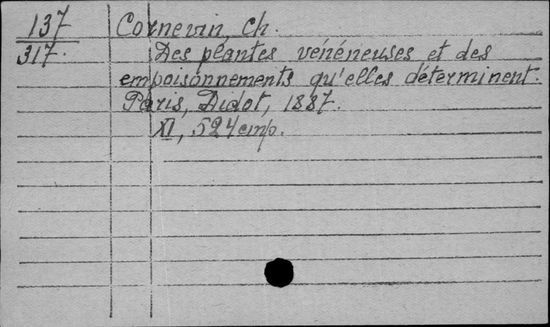 137 Cornevin, Ch.
317. Des plantes vénéneuses et des
empoisonnements qu'elles déterminent.
Paris, Didot, 1887.
XI, 524 стр.